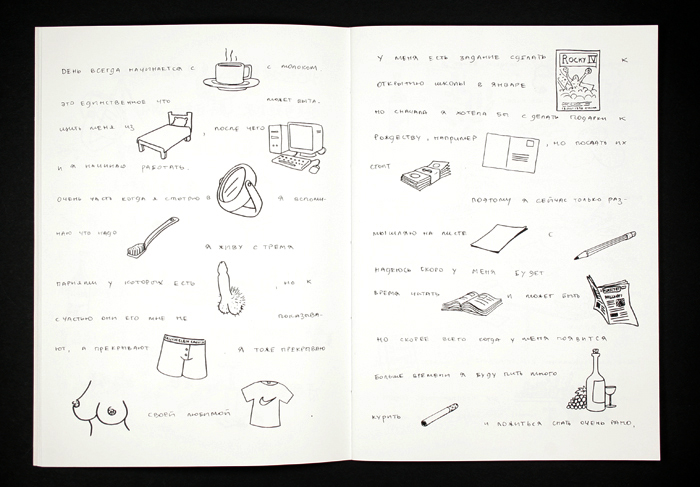 ДЕНЬ ВСЕГДА НАЧИНАЕТСЯ С С МОЛОКОМ
ЭТО ЕДИНСТВЕННОЕ ЧТО МОЖЕТ ВЫТА-
ЩИТЬ МЕНЯ ИЗ , ПОСЛЕ ЧЕГО
И Я НАЧИНАЮ РАБОТАТЬ.
ОЧЕНЬ ЧАСТО КОГДА Я СМОТРЮ В Я ВСПОМИ-
НАЮ ЧТО НАДО Я ЖИВУ С ТРЕМЯ
ПАРНЯМИ У КОТОРЫХ ЕСТЬ , НО К
СЧАСТЬЮ ОНИ ЕГО МНЕ НЕ ПОКАЗЫВА-
ЮТ, А ПРЕКРЫВАЮТ . Я ТОЖЕ ПРЕКРЫВАЮ
СВОЕЙ ЛЮБИМОЙ .
У МЕНЯ ЕСТЬ ЗАДАНИЕ СДЕЛАТЬ К
ROCKY IV
ОТКРЫТИЮ ШКОЛЫ В ЯНВАРЕ
НО СНАЧАЛА Я ХОТЕЛА БЫ СДЕЛАТЬ ПОДАРКИ К
РОЖДЕСТВУ, НАПРИМЕР , НО ПОСЛАТЬ ИХ
СТОИТ
ПОЭТОМУ Я СЕЙЧАС ТОЛЬКО РАЗ-
МЫШЛЯЮ НА ЛИСТЕ С
НАДЕЮСЬ СКОРО У МЕНЯ БУДЕТ
ВРЕМЯ ЧИТАТЬ И МОЖЕТ БЫТЬ
НО СКОРЕЕ ВСЕГО КОГДА У МЕНЯ ПОЯВИТСЯ
БОЛЬШЕ ВРЕМЕНИ Я БУДУ ПИТЬ МНОГО
КУРИТЬ И ЛОЖИТЬСЯ СПАТЬ ОЧЕНЬ РАНО.